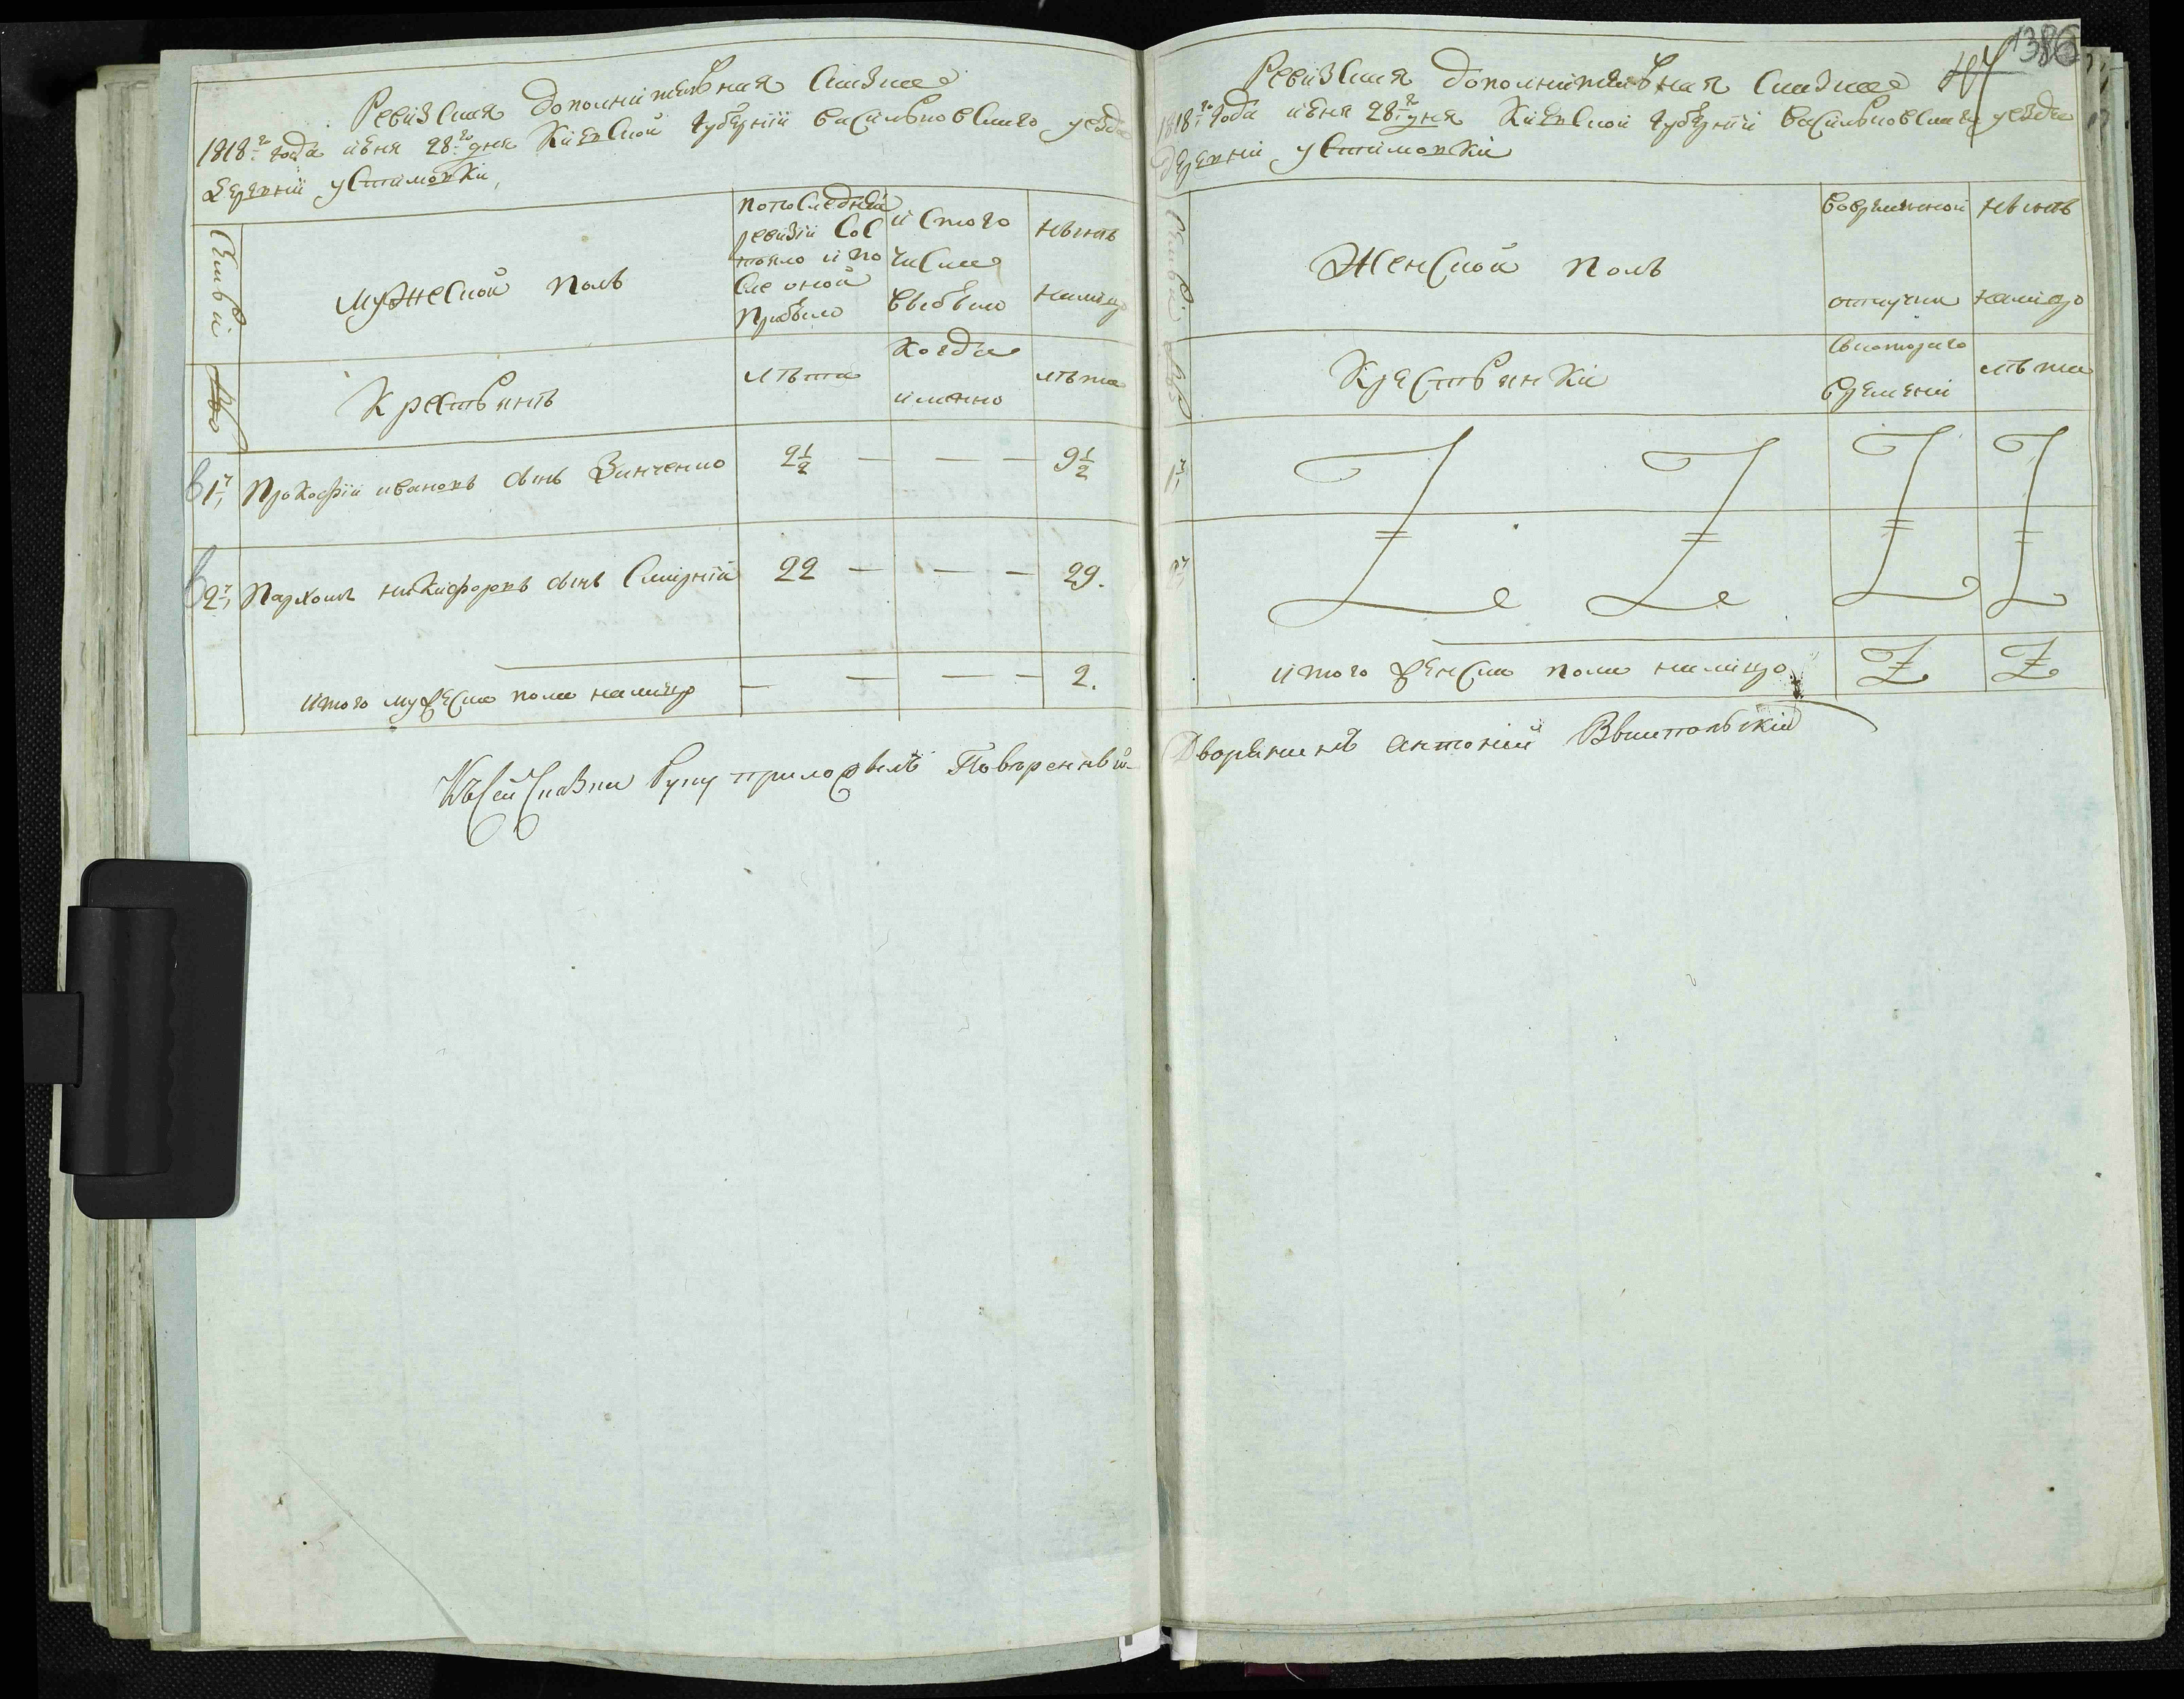 Ревизская дополнительная сказка
1818го года июня 28го дня Киевской губернии васильковскаго уезда
деревни устимовки
Семьи
№о
мужеской полъ
По последней
ревизии сос
тояло и по
сле оной
прибыло
и стого
числа
выбыло
нынѣ
налицо
Крестьянѣ
лѣта
когда
именно
лѣта
1й Прокофии ивановъ сынъ Зинченко 2½ — — — 9½
2й Пархомъ никифоровъ сынъ Смирнїй 22 — — — 29.
итого мужеска пола налицо — — — — 2.
Къ сей Сказки Руку приложилъ Повѣренный
386
Ревизская дополнительная сказка
1818го года июня 28го дня Киевской губернии васильковскаго уезда
деревни устимовки
Семьи
№о
Женской полъ
Вовременной
отлучки
нынѣ
налицо
Крестьянки
Скотораго
времени
лѣта
1й
2й
итого женска пола налицо
Дворянинъ Антоній